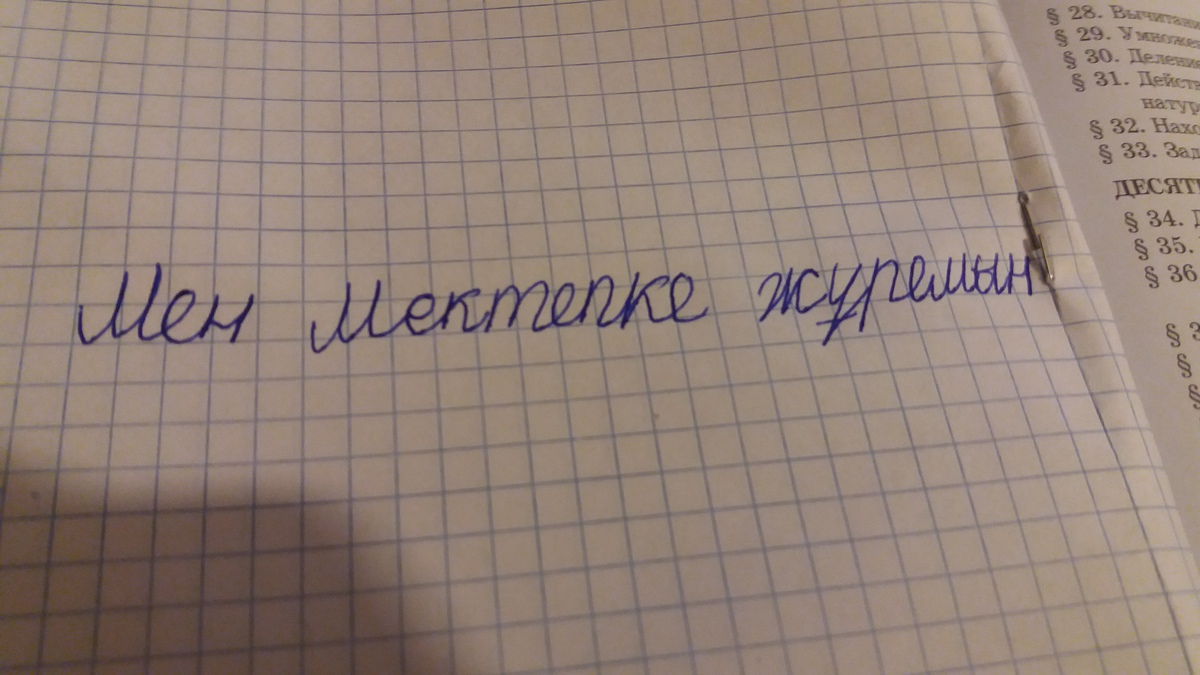 Мен Мектепке жұремын
§ 28. Вычитани
§ 29. Умноже
§ 30. Деление
§ 31. Действ
натур
§ 32. Нахо
§ 33. Зад
ДЕСЯТИ
§ 34. Д
§ 35.
§ 36
§ 3
§
§